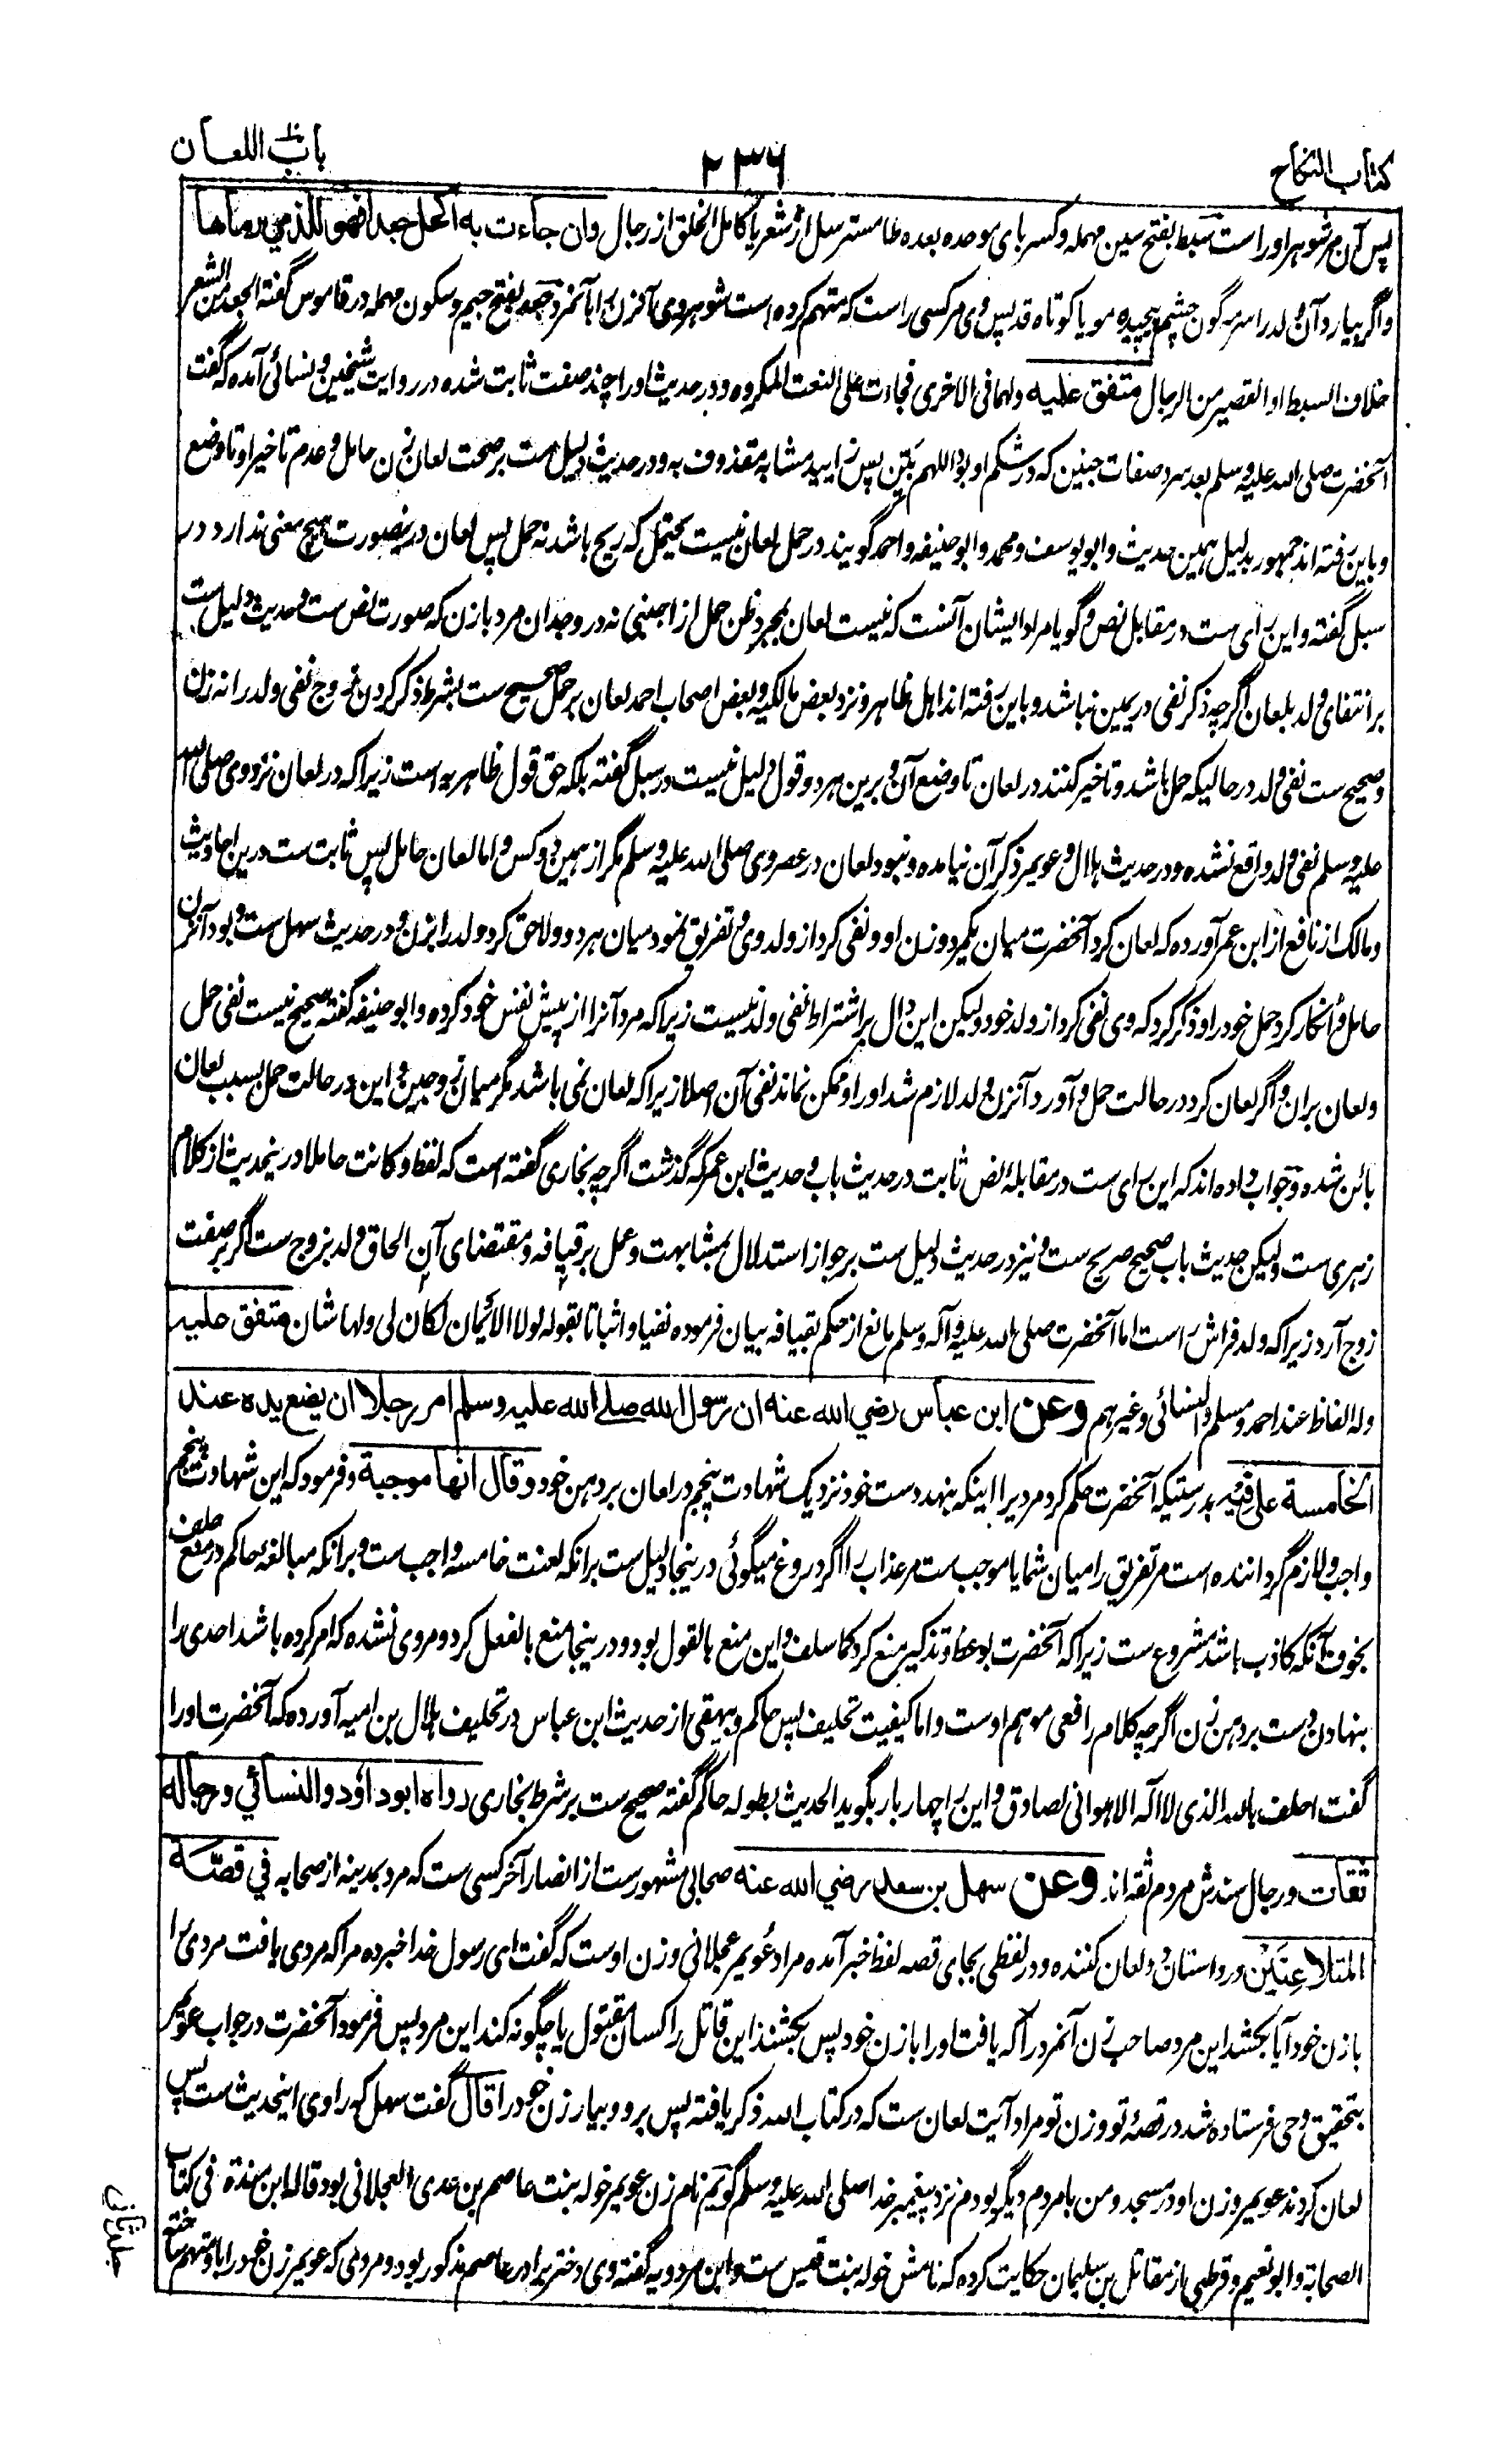 کتاب النکاح
۲۳۶
باب اللعان
پس آن مر شوهر او راست سبط بفتح سین مهمله و کسر بای موحده بعده طا مسترسل از شعر یا کامل الخلق از رجال وان جاءت به اکحل جعدا فهو للذي رماها
واگر بیارد آن ولد را سرمه گون چشم پیچیده مو یا کوتاه قد پس وی مر کسی راست که متهم کرده است شوهر وی آنزن را بآنمرد جعد بفتح جیم و سکون مهمله در قاموس گفته الجعد من الشعر
خلاف السبط او القصیر من الرجال متفق علیه ولهما فی الاخری فجاءت علی النعت المکروه ودر حدیث اورا چند صفت ثابت شده در روایت شیخین و نسائی آمده که گفت
آنحضرت صلی الله علیه وسلم بعد سرد صفات جنین که در شکم او بود اللهم بین پس زایید مشابه مقذوف به ودر حدیث دلیل ست بر صحت لعان زن حامل و عدم تاخیر او تا وضع
وباین رفته اند جمهور بدلیل همین حدیث وابو یوسف ومحمد وابو حنیفه واحمد گویند در حمل لعان نیست یحتمل که ریح باشد نه حمل پس لعان درینصورت هیچ معنی ندارد در
سبل گفته واین رای ست در مقابل نص وگویا مراد ایشان آنست که نیست لعان بمجرد ظن حمل از اجنبی نه در وجدان مرد بازن که صورت نص ست وحدیث دلیل ست
بر انتفای ولد بلعان اگرچه ذکر نفی در یمین نباشد وباین رفته اند اهل ظاهر ونزد بعض مالکیه وبعض اصحاب احمد لعان بر حمل صحیح ست بشرط ذکر کردن زوج نفی ولد را نه زن
وصحیح ست نفی ولد در حالیکه حمل باشد وتاخیر کنند در لعان تا وضع آن وبرین هردو قول دلیل نیست در سبل گفته بلکه حق قول ظاهریه است زیرا که در لعان نزد وی صلی الله
علیه وسلم نفی ولد واقع نشده ودر حدیث هلال وعویمر ذکر آن نیامده ونبود لعان در عصر وی صلی الله علیه وسلم مگر از همین دو کس واما لعان حامل پس ثابت ست درین احادیث
ومالک از نافع از ابن عمر آورده که لعان کرد آنحضرت میان یکمرد وزن او ونفی کرد از ولد وی وتفریق نمود میان هردو ولاحق کرد ولد را بزن ودر حدیث سهل ست وبود آنزن
حامل وانکار کرد حمل خود را وذکر کرد که وی نفی کرد از ولد خود ولیکن این دال بر اشتراط نفی ولد نیست زیرا که مرد آنرا از پیش نفس خود کرده وابو حنیفه گفته صحیح نیست نفی حمل
ولعان بران واگر لعان کرد در حالت حمل وآورد آنزن ولد لازم شد اورا وممکن نماند نفی آن اصلا زیرا که لعان نمی باشد مگر میان زوجین واین در حالت حمل بسبب لعان
بائن شده وجواب داده اند که این رای ست در مقابلهٔ نص ثابت در حدیث باب وحدیث ابن عمر که گذشت اگرچه بخاری گفته است که لفظ وکانت حاملا درینحدیث از کلام
زهری ست ولیکن حدیث باب صحیح صریح ست ونیز در حدیث دلیل ست بر جواز استدلال بمشابهت وعمل بر قیافه ومقتضای آن الحاق ولد بزوج ست اگر بر صفت
زوج آرد زیرا که ولد فراش راست اما آنحضرت صلی الله علیه وآله وسلم مانع از حکم بقیافه بیان فرموده نفیا واثباتا بقوله لولا الائیمان لکان لی ولها شان متفق علیه
وله الفاظ عند احمد ومسلم والنسائی وغیرهم وعن ابن عباس رضي الله عنه ان رسول الله صلے الله علیه وسلم امر رجلا ان یضع یده عند
الخامسة علی فیه بدرستیکه آنحضرت حکم کرد مردیرا اینکه بنهد دست خود نزدیک شهادت پنجم در لعان بر دهن خود وقال انها موجبة وفرمود که این شهادت پنجم
واجب ولازم گرداننده است مر تفریق را میان شما یا موجب ست مر عذاب را اگر دروغ میگوئی درینجا دلیل ست برانکه لعنت خامسه واجب ست وبرانکه مبالغه حاکم در منع حلف
بخوف آنکه کاذب باشد مشروع ست زیرا که آنحضرت بوعظ وتذکیر منع کرد کما سلف واین منع بالقول بود ودرینجا منع بالفعل کرد ومروی نشده که امر کرده باشد احدی را
بنهادن دست بر دهن زن اگرچه کلام رافعی موهم اوست واما کیفیت تحلیف پس حاکم وبیهقی از حدیث ابن عباس در تحلیف هلال بن امیه آورده که آنحضرت اورا
گفت احلف بالله الذی لا اله الا هو انی لصادق واین را چهار بار بگوید الحدیث بطوله حاکم گفته صحیح ست بر شرط بخاری رواه ابوداؤد والنسائي ورجاله
ثقات ورجال سندش مردم ثقه اند وعن سهل بن سعد رضي الله عنه صحابی مشهورست از انصار آخر کسی ست که مرد بمدینه از صحابه في قصّة
المتلاعِنَیْن ورد داستان دو لعان کننده ودر لفظی بجای قصه لفظ خبر آمده مراد عُویمر عجلانی وزن اوست که گفت ای رسول خدا خبر ده مرا که مردی یافت مردی را
بازن خود آیا بکشد این مرد صاحب زن آنمرد را که یافت اورا بازن خود پس بکشند این قاتل را کسان مقتول یا چگونه کند این مرد پس فرمود آنحضرت در جواب عویمر
بتحقیق وحی فرستاده شد در قصهٔ تو وزن تو مراد آیت لعان ست که در کتاب الله ذکر یافته پس برو وبیار زن خود را قال گفت سهل که راوی اینحدیث ست پس
لعان کردند عویمر وزن او در مسجد ومن بامردم دیگر بودم نزد پیغمبر خدا صلی الله علیه وسلم گویم نام زن عویمر خوله بنت عاصم بن عدی العجلانی بود قاله ابن منده فی کتاب
الصحابة وابو نعیم وقرطبی از مقاتل بن سلیمان حکایت کرده که نامش خوله بنت قیس ست وابن مردویه گفته وی دختر برادر عاصم مذکور بود ومرویی که عویمر زن خود را باو متهم ساخت
جلد ثانی